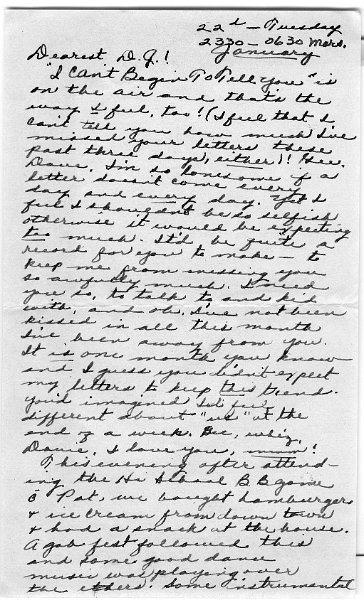 22d - Tuesday
2330 - 0630 Mars.
January
Dearest D.J.!
"I Can't Begin To Tell You" is
on the air and that's the
way I feel, too! (I feel that I
can't tell you how much I've
missed your letters these
past three days, either)! Gee,
Dave, I'm so lonesome if a
letter doesn't come every
day, and every day. Yet I
feel I shouldn't be so selfish,
otherwise it would be expecting
too much. It'd be quite a
record for you to make - to
keep me from missing you
so awfully much. I need
you so, to talk to and kid
with, and oh, I've not been
kissed in all this month
I've been away from you.
It is one month you know
and I guess you didn't expect
my letters to keep this trend.
You'd imagined I'd feel
different about "us" at the
end of a week. Gee, whiz,
Davie, I love you, mmm!
This evening after attend-
ing the Hi School B B game
& Pat, we bought hamburgers
& ice cream from down town
& had a snack at the house.
A gab fest followed this
and some good dance
music was playing over
the ethers. Some instrumental